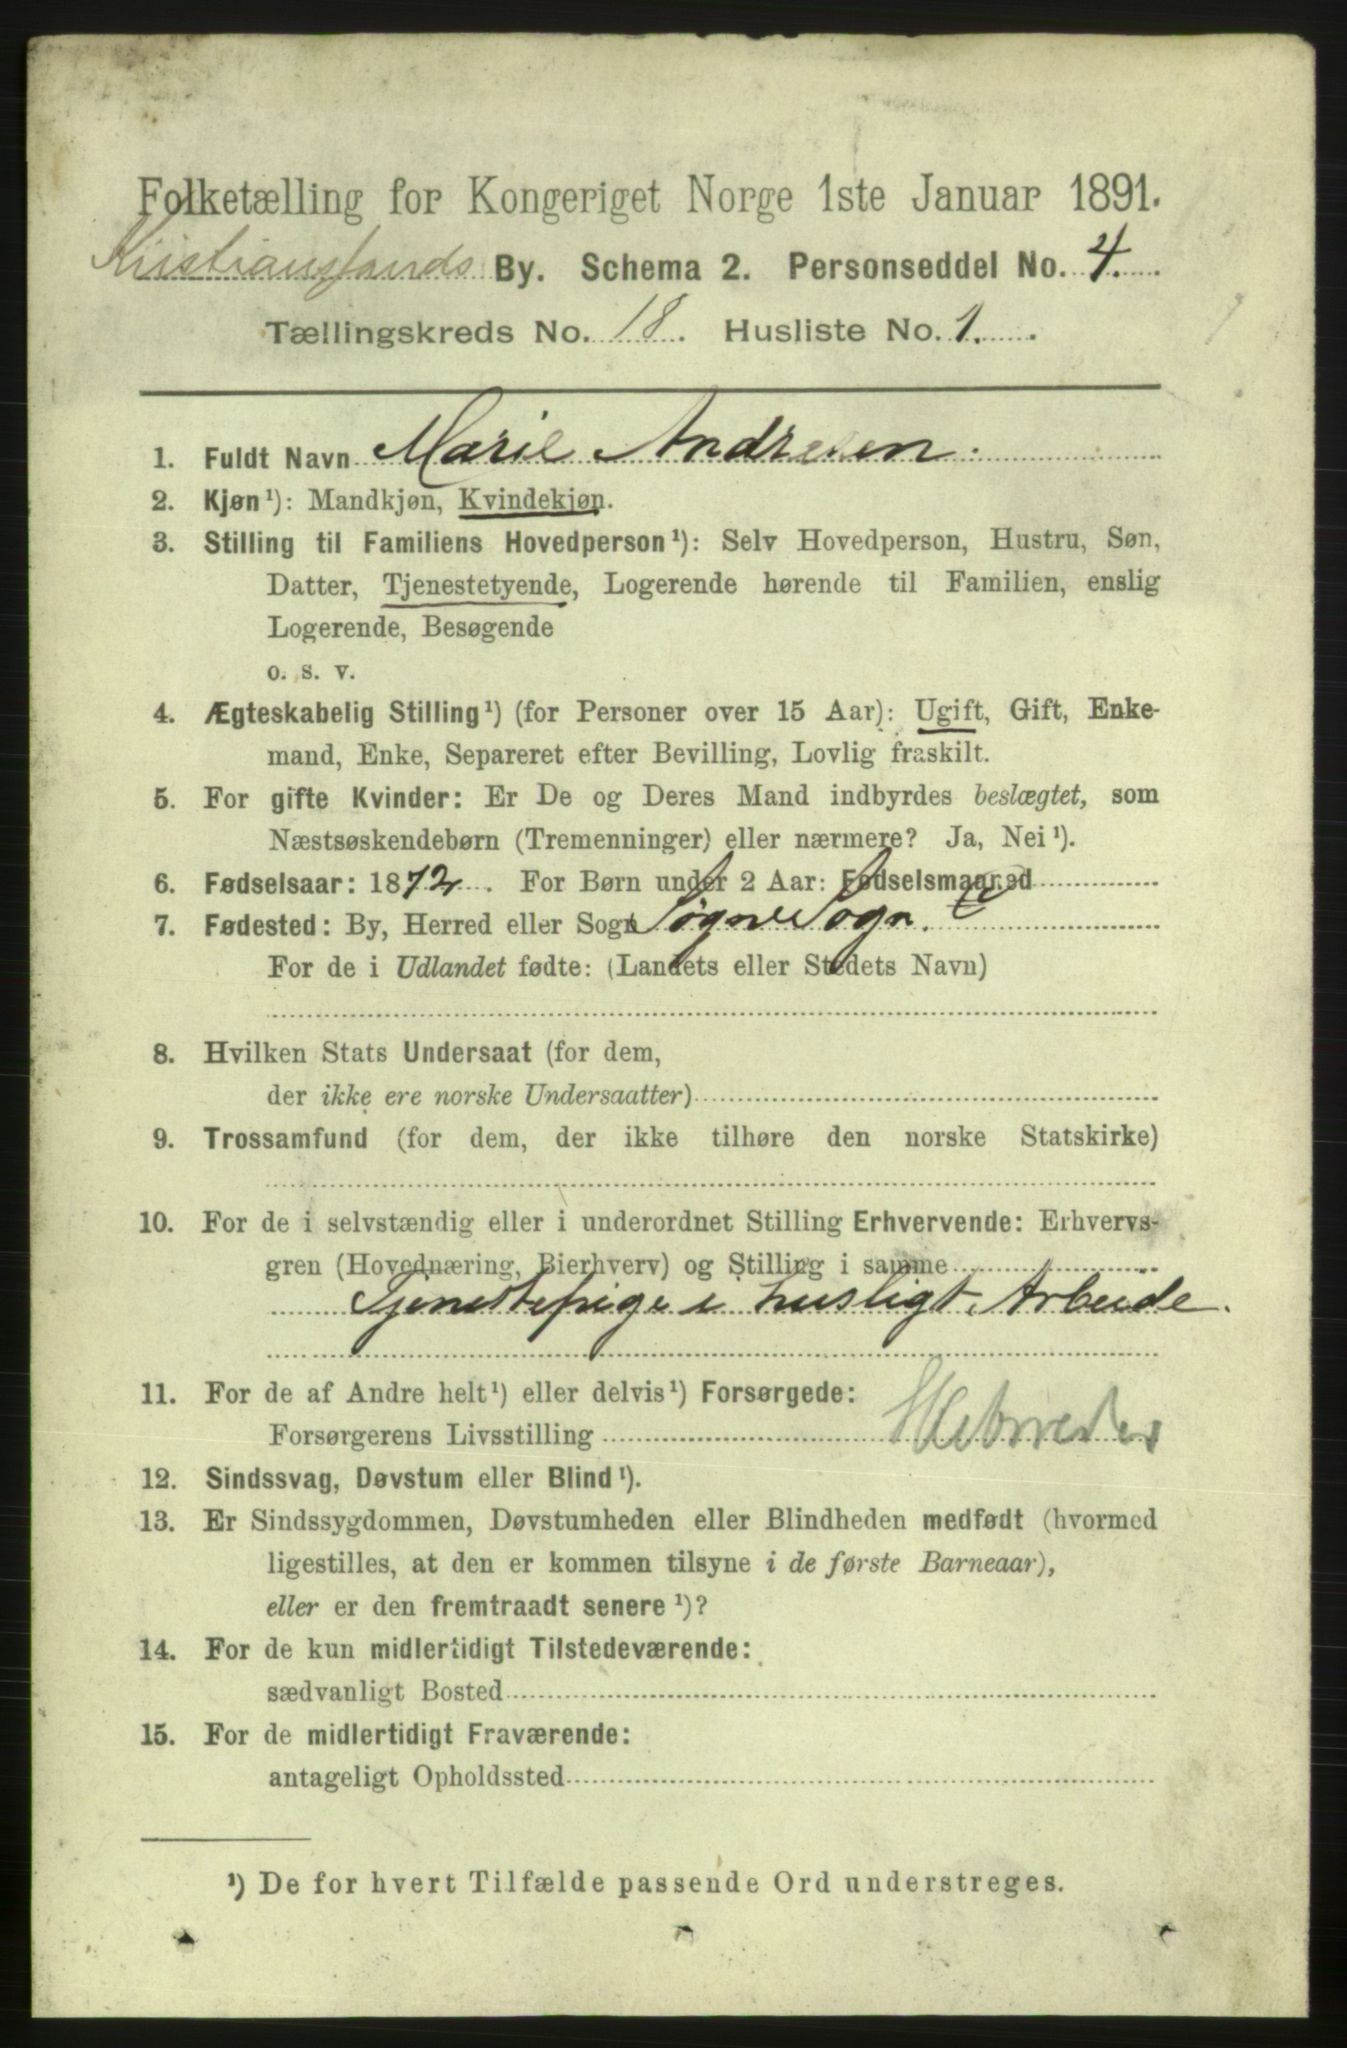 Folketælling for Kongeriget Norge 1ste Januar 1891.
Kristianssands By. Schema 2. Personseddel No. 4.
Tællingskreds No. 18. Husliste No. 1.
1. Fuldt Navn Marie Andresen.
2. Kjøn¹): Mandkjøn, Kvindekjøn.
3. Stilling til Familiens Hovedperson¹): Selv Hovedperson, Hustru, Søn,
Datter, Tjenestetyende, Logerende hørende til Familien, enslig
Logerende, Besøgende
o. s. v.
4. Ægteskabelig Stilling¹) (for Personer over 15 Aar): Ugift, Gift, Enke-
mand, Enke, Separeret efter Bevilling, Lovlig fraskilt.
5. For gifte Kvinder: Er De og Deres Mand indbyrdes beslægtet, som
Næstsøskendebørn (Tremenninger) eller nærmere? Ja, Nei¹).
6. Fødselsaar: 1872. For Børn under 2 Aar: Fødselsmaaned
7. Fødested: By, Herred eller Sogn Søgne Sogn.
For de i Udlandet fødte: (Landets eller Stedets Navn)
8. Hvilken Stats Undersaat (for dem,
der ikke ere norske Undersaatter)
9. Trossamfund (for dem, der ikke tilhøre den norske Statskirke)
10. For de i selvstændig eller i underordnet Stilling Erhvervende: Erhvervs-
gren (Hovednæring, Bierhverv) og Stilling i samme
Tjenestepige i husligt Arbeide.
11. For de af Andre helt¹) eller delvis¹) Forsørgede:
Forsørgerens Livsstilling
12. Sindssvag, Døvstum eller Blind¹).
13. Er Sindssygdommen, Døvstumheden eller Blindheden medfødt (hvormed
ligestilles, at den er kommen tilsyne i de første Barneaar),
eller er den fremtraadt senere¹)?
14. For de kun midlertidigt Tilstedeværende:
sædvanligt Bosted
15. For de midlertidigt Fraværende:
antageligt Opholdssted
¹) De for hvert Tilfælde passende Ord understreges.